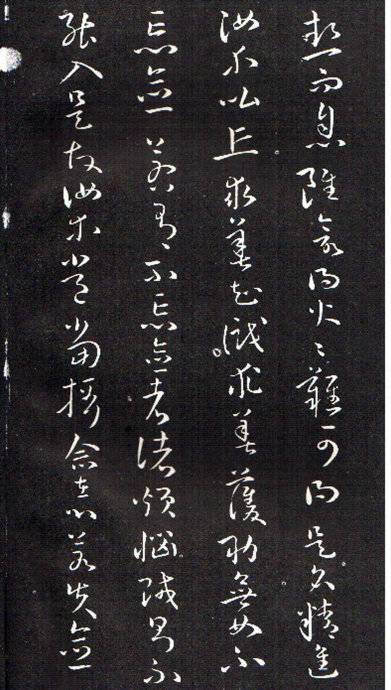 熱而息雖欲得火々難可得是名精進
汝等比丘求善知識求善護助無如不
忘念若有不忘念者諸煩惱賊則不
能入是故汝等常當攝念在心若失念